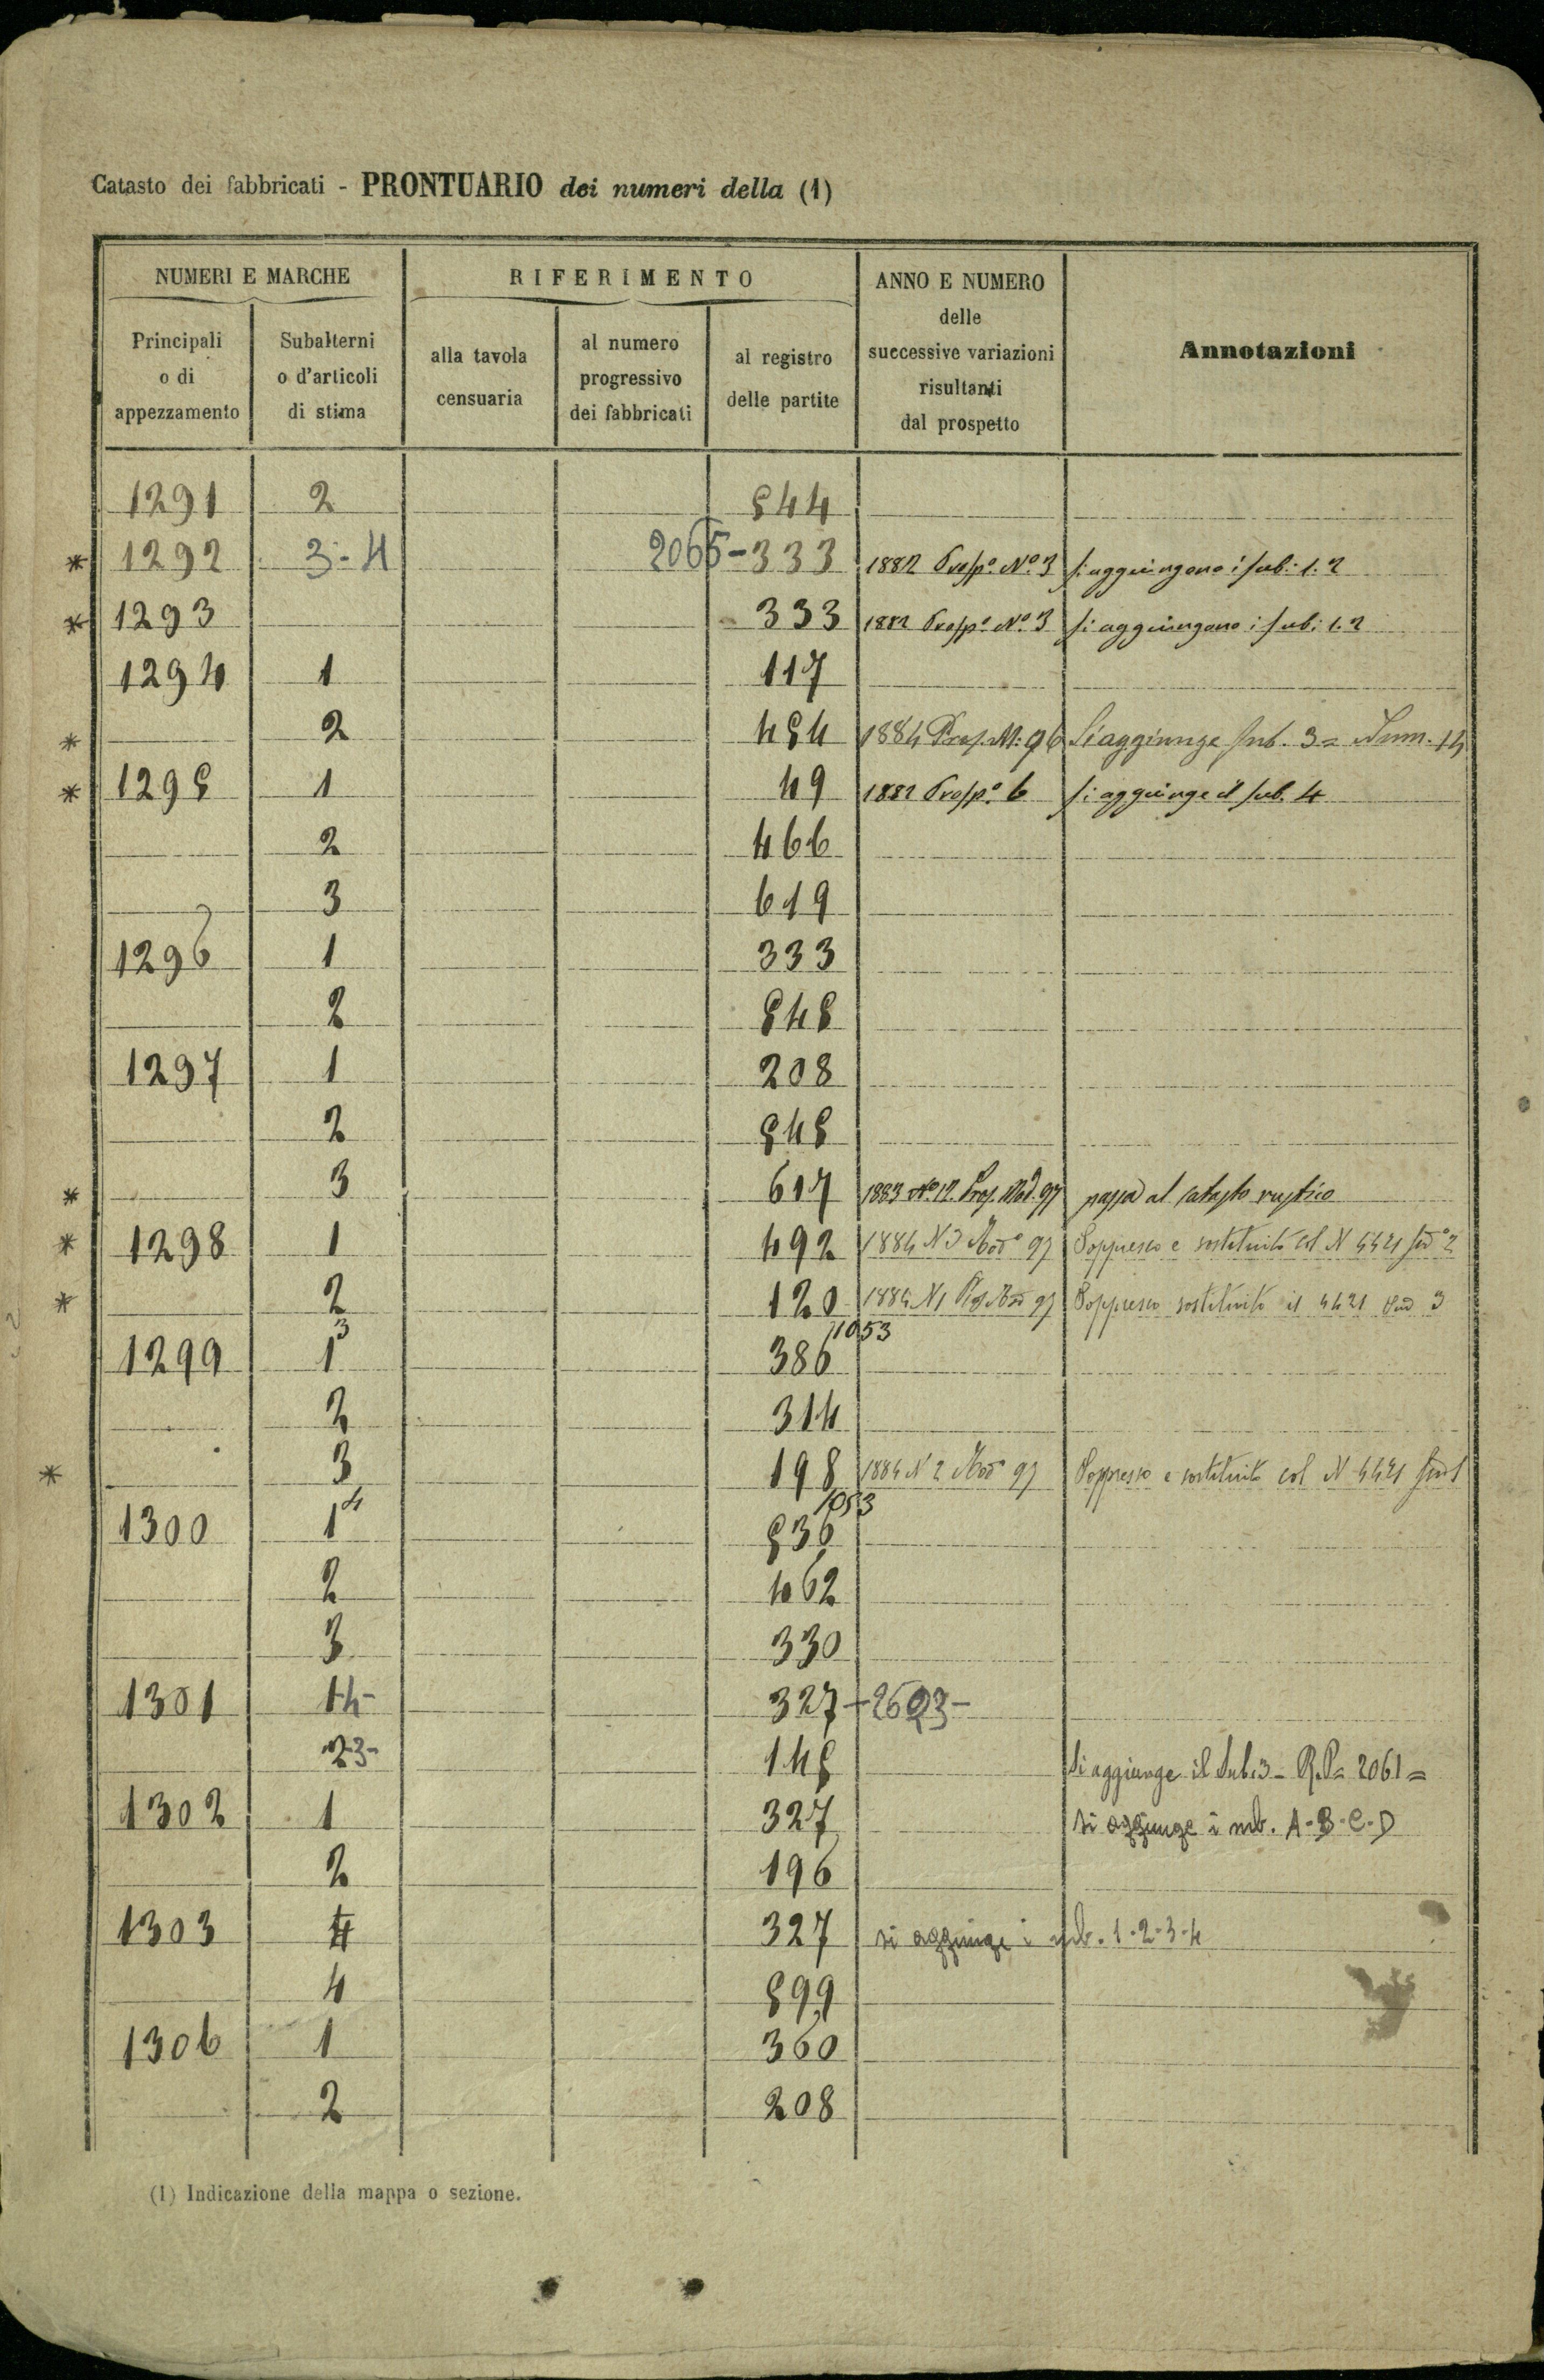 Catasto dei fabbricati - PRONTUARIO dei numeri della (1)
NUMERI E MARCHE
RIFERIMENTO
ANNO E NUMERO
delle
successive variazioni
risultanti
dal prospetto
Annotazioni
Principali
o di
appezzamento
Subalterni
o d'articoli
di stima
alla tavola
censuaria
al numero
progressivo
dei fabbricati
al registro
delle partite
1291 2 544
* 1292 3-4 2065-333 1882 Prosp.o N.o 3 si aggiungono i sub: 1. 2
* 1293 333 1882 Prosp.o N.o 3 si aggiungono i sub: 1. 2
1294 1 117
* 2 454 1884 Prosp. M: 96 Si aggiunge sub. 3 = Num. 14
* 1295 1 49 1882 Prosp.o 6 si aggiunge il sub. 4
2 466
3 619
1296 1 333
2 545
1297 1 208
2 545
* 3 617 1883 N.o 12. Prosp. Mod. 97 passa al catasto rustico
* 1298 1 492 1884 N 3 Mod.o 97 Soppresso e sostituito col N 4421 sub 2
* 2 120 1884 N 1 Mod 97 Soppresso sostituito il 4421 sub 3
1299 1 3 386 1053
2 314
* 3 198 1884 N 2 Mod.o 97 Soppresso e sostituito col N 4421 sub 1
1300 1 4 536 1053
2 462
3 330
1301 1-4- 327-2693-
2-3- 145 Si aggiunge il Sub: 3 - R.P. = 2061 =
1302 1 327 si aggiunge i sub. A-B-C-D
2 196
1303 327 si aggiunge i sub. 1-2-3-4
4 599
1306 1 360
2 208
(1) Indicazione della mappa o sezione.